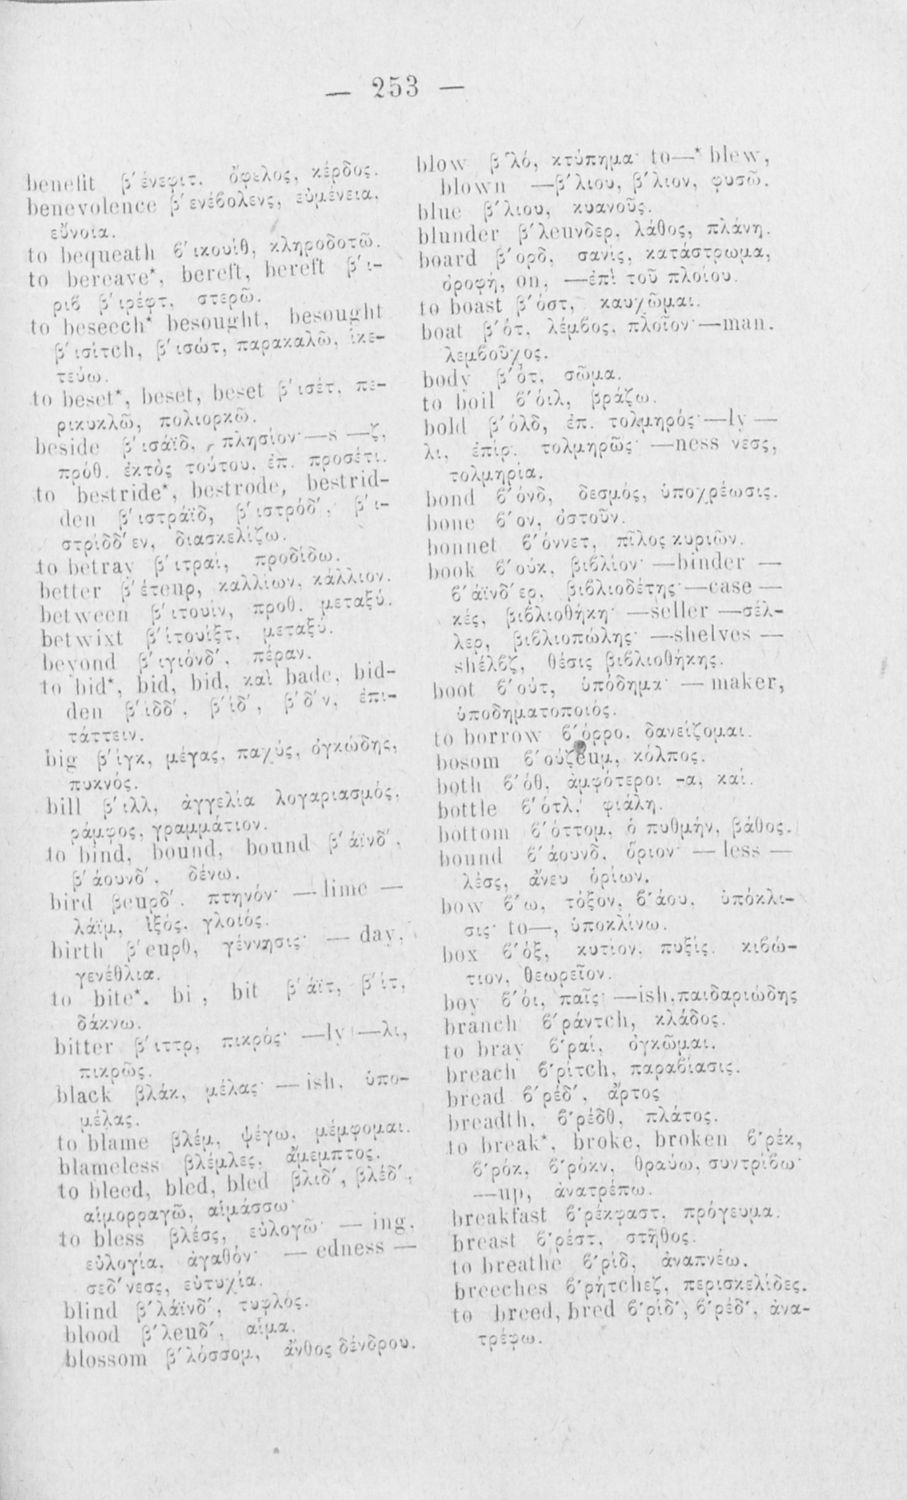 — 253 —
benefit β΄ένεφιτ, ὄφελος, κέρδος.
benevolence β΄ενέβολενς, εὐμένεια,
εὔνοια.
to bequeath ϐ΄ικουίθ, κληροδοτῶ.
to bereave*, bereft, bereft β΄ι-
ριϐ β΄ιρέφτ, στερῶ.
to beseech* besought, besought
β΄ισίτch, β΄ισώτ, παρακαλῶ, ἱκε-
τεύω.
to beset*, beset, beset β΄ισέτ, πε-
ρικυκλῶ, πολιορκῶ.
beside β΄ισάϊδ, πλησίον· —s —ζ,
πρόθ. ἐκτὸς τούτου, ἐπ. προσέτι.
to bestride*, bestrode, bestrid-
den β΄ιστράϊδ, β΄ιστρόδ΄, β΄ι-
στρίδδ΄εν, διασκελίζω.
to betray β΄ιτραί, προδίδω.
better β΄έτευρ, καλλίων, κάλλιον.
between β΄ιτουίν, προθ. μεταξύ.
betwixt β΄ίτουίξτ, μεταξύ.
beyond β΄ιγιόνδ΄, πέραν.
to bid*, bid, bid, καὶ bade, bid-
den β΄ίδδ΄, β΄ίδ΄, β΄δ΄ν, ἐπι-
τάττειν.
big β΄ίγκ, μέγας, παχύς, ὀγκώδης,
πυκνός.
bill β΄ιλλ, ἀγγελία λογαριασμός,
ράμφος, γραμμάτιον.
to bind, bound, bound β΄άϊνδ΄,
β΄άουνδ΄, δένω.
bird βευρδ΄, πτηνόν· —lime —
λάϊμ, ἰξός, γλοιός.
birth β΄ευρθ, γέννησις· — day,
γενέθλια.
to bite*, bi , bit β΄άϊτ, β΄ίτ,
δάκνω.
bitter β΄ιττρ, πικρός· —ly —λι,
πικρῶς.
black βλάκ, μέλας· — ish, ὑπο-
μέλας.
to blame βλέμ, ψέγω, μέμφομαι.
blameless βλέμλες, ἄμεμπτος.
to bleed, bled, bled βλιδ΄, βλέδ΄,
αἱμορραγῶ, αἱμάσσω·
to bless βλέσς, εὐλογῶ· — ing,
εὐλογία, ἀγαθόν· — edness —
σεδ΄νεσς, εὐτυχία.
blind β΄λάϊνδ΄, τυφλός.
blood β΄λευδ΄, αἷμα.
blossom β΄λόσσομ, ἄνθος δένδρου.
blow β΄λό, κτύπημα· to—* blew,
blown —β΄λιου, β΄λιον, φυσῶ.
blue β΄λιου, κυανοῦς.
blunder β΄λευνδερ, λάθος, πλάνη.
board β΄ορδ, σανίς, κατάστρωμα,
ὀροφή, on, —ἐπὶ τοῦ πλοίου.
to boast β΄όστ, καυχῶμαι.
boat β΄ότ, λέμβος, πλοῖον·—man.
λεμβοῦχος.
body β΄ότ, σῶμα.
to boil ϐ΄όιλ, βράζω.
bold β΄όλδ, ἐπ. τολμηρός·—ly —
λι, ἐπίρ. τολμηρῶς· —ness νεσς,
τολμηρία.
bond ϐ΄όνδ, δεσμός, ὑποχρέωσις.
bone ϐ΄ον, ὀστοῦν.
bonnet ϐ΄όννετ, πῖλος κυριῶν.
book ϐ΄ούκ, βιβλίον· —binder —
ϐ΄άϊνδ΄ερ, βιβλιοδέτης·—case —
κές, βιβλιοθήκη· —seller —σέλ-
λερ, βιβλιοπώλης· —shelves —
shέλβζ, θέσις βιβλιοθήκης.
boot ϐ΄ούτ, ὑπόδημα· — maker,
ὑποδηματοποιός.
to borrow ϐ΄όρρο, δανείζομαι.
bosom ϐ΄ούζευμ, κόλπος.
both ϐ΄όθ, ἀμφότεροι -α, καί.
bottle ϐ΄ότλ, φιάλη.
bottom ϐ΄όττομ, ὁ πυθμήν, βάθος.
bound ϐ΄άουνδ, ὅριον· — less —
λέσς, ἄνευ ὁρίων.
bow ϐ΄ω, τόξον, ϐ΄άου, ὑπόκλι-
σις· to—, ὑποκλίνω.
box ϐ΄όξ, κυτίον, πυξίς, κιβώ-
τιον, θεωρεῖον.
boy ϐ΄όι, παῖς· —ish, παιδαριώδης
branch ϐ΄ράντch, κλάδος.
to bray ϐ΄ραί, ὀγκῶμαι.
breach ϐ΄ρίτch, παραβίασις.
bread ϐ΄ρέδ΄, ἄρτος
breadth, ϐ΄ρέδθ, πλάτος.
to break*, broke, broken ϐ΄ρέκ,
ϐ΄ρόκ, ϐ΄ρόκν, θραύω, συντρίβω·
—up, ἀνατρέπω.
breakfast ϐ΄ρέκφαστ, πρόγευμα.
breast ϐ΄ρέστ, στῆθος.
to breathe ϐ΄ρίδ, ἀναπνέω.
breeches ϐ΄ρήτchεζ, περισκελίδες.
to breed, bred ϐ΄ρίδ΄, ϐ΄ρέδ΄, ἀνα-
τρέφω.